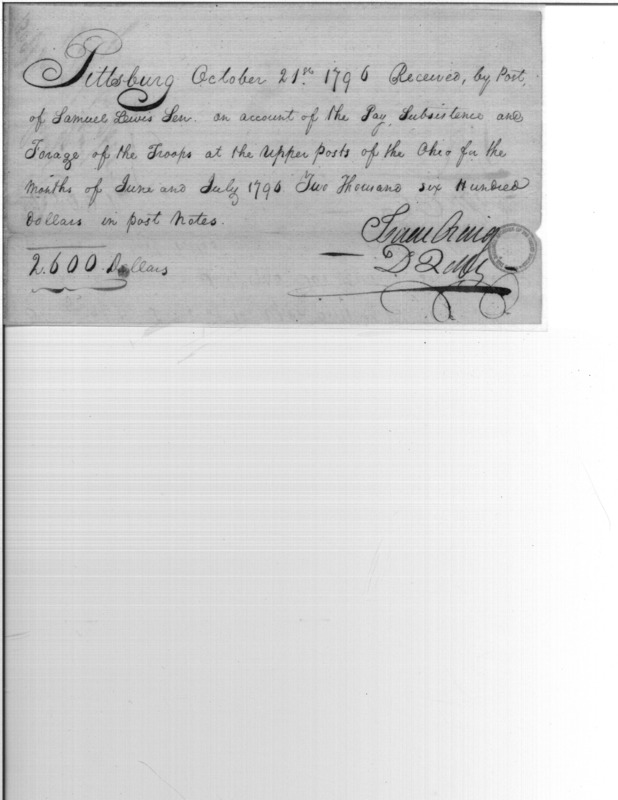 Pittsburg October 21st 1796 Received, by Post,
of Samuel Lewis Sen. on account of the Pay, Subsistence and
Forage of the Troops at the Upper Posts of the Ohio for the
Months of June and July 1796 Two Thousand six Hundred
Dollars in post Notes.
Isaac Craig
2.600 Dollars